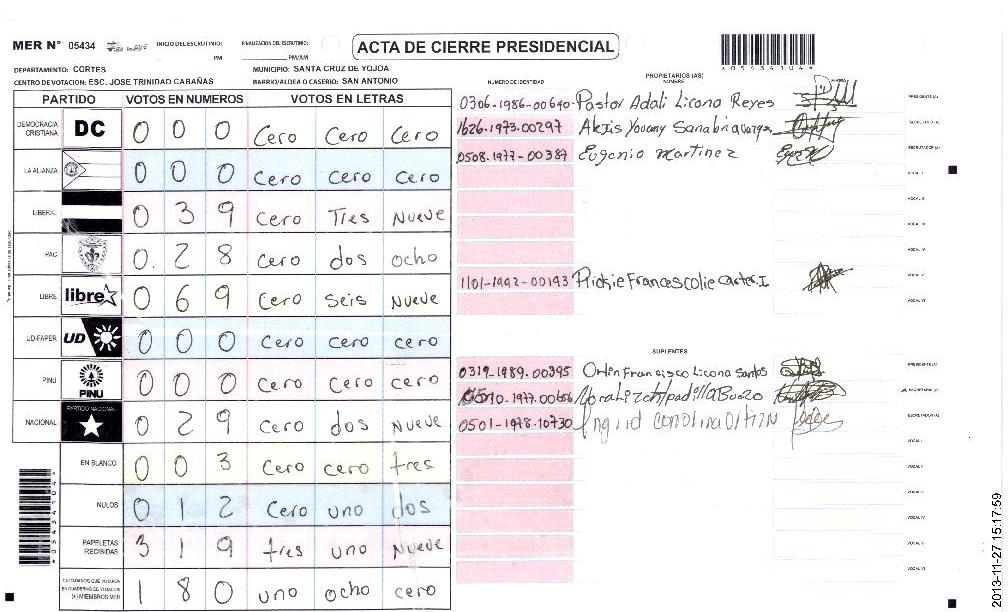 MER N° 05434 INICIO DEL ESCRUTINIO: PM FINALIZACION DEL ESCRUTINIO: PM/AM
ACTA DE CIERRE PRESIDENCIAL
DEPARTAMENTO: CORTES MUNICIPIO: SANTA CRUZ DE YOJOA
CENTRO DE VOTACION: ESC. JOSE TRINIDAD CABAÑAS BARRIO/ALDEA O CASERIO: SAN ANTONIO
PARTIDO VOTOS EN NUMEROS VOTOS EN LETRAS
DEMOCRACIA CRISTIANA DC 0 0 0 Cero Cero Cero
LA ALIANZA 0 0 0 Cero cero cero
LIBERAL 0 3 9 Cero Tres Nueve
PAC 0. 2 8 Cero dos ocho
LIBRE libre 0 6 9 Cero seis Nueve
UD-FAPER UD 0 0 0 Cero cero cero
PINU PINU 0 0 0 Cero cero cero
NACIONAL PARTIDO NACIONAL 0 2 9 Cero dos Nueve
EN BLANCO 0 0 3 Cero cero tres
NULOS 0 1 2 Cero uno dos
PAPELETAS RECIBIDAS 3 1 9 tres uno Nueve
CIUDADANOS QUE VOTARON EN CUADERNO DE VOTACION (+) MIEMBROS MER 1 8 0 uno ocho cero
NUMERO DE IDENTIDAD PROPIETARIOS (AS) NOMBRE FIRMA
0306-1986-00640 Pastor Adali Licona Reyes PRESIDENTE (A)
1626.1973.00297 Alexis Yovany Sanabria SECRETARIO (A)
0508.1977-00387 Eugenio Martinez ESCRUTADOR (A)
VOCAL I
VOCAL II
VOCAL III
VOCAL IV
1101-1992-00193 VOCAL V
VOCAL VI
SUPLENTES
0319-1989.00395 Orlin Francisco Licona Santos PRESIDENTE (A)
SECRETARIO (A)
0501-1978-10730 Ingrid Carolina ESCRUTADOR (A)
VOCAL I
VOCAL II
VOCAL III
VOCAL IV
VOCAL V
VOCAL VI
2013-11-27 15:17:59